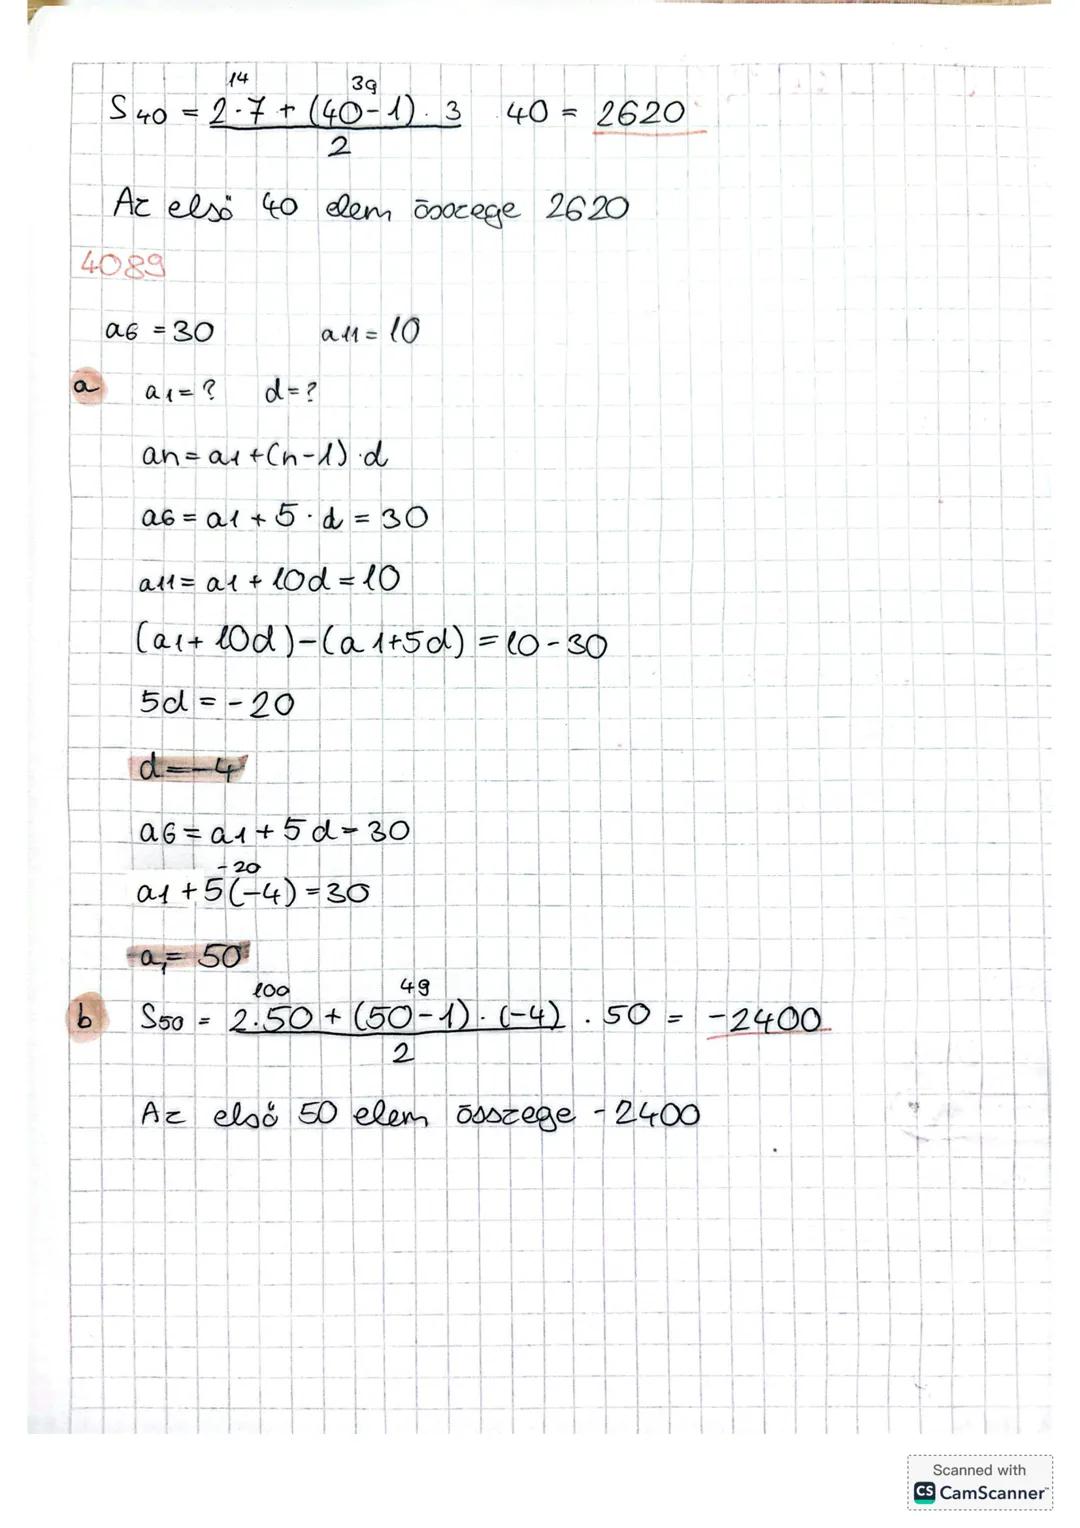 14 39
S40 = 2·7 + (40-1) · 3 · 40 = 2620
2
Az első 40 elem összege 2620
4089
a6 = 30 a11 = 10
a a1 = ? d = ?
an = a1 + (n-1) · d
a6 = a1 + 5 · d = 30
a11 = a1 + 10d = 10
(a1 + 10d) - (a1 + 5d) = 10 - 30
5d = -20
d = -4
a6 = a1 + 5d = 30
-20
a1 + 5(-4) = 30
a1 = 50
100 49
b S50 = 2·50 + (50-1) · (-4) · 50 = -2400
2
Az első 50 elem összege -2400
Scanned with
CS CamScanner